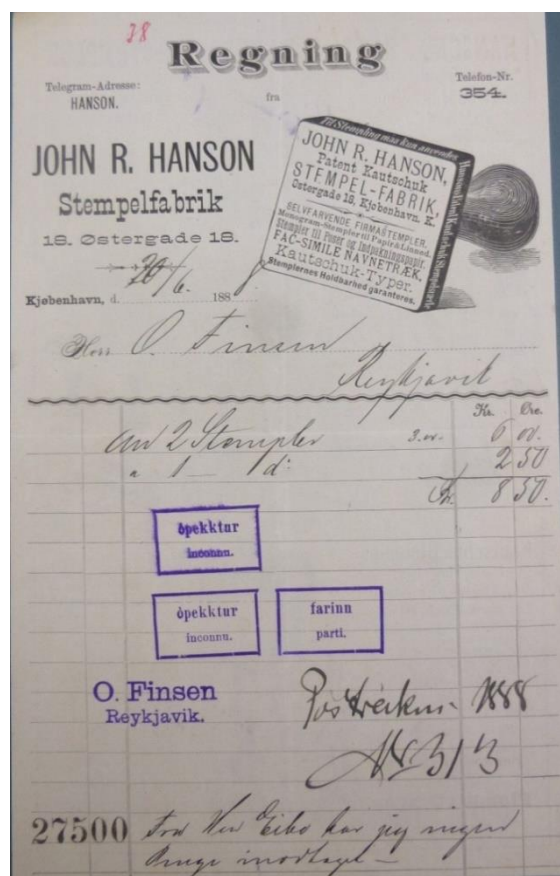 38
Regning
Telegram-Adresse:
HANSON.
fra
Telefon-Nr.
354.
JOHN R. HANSON
Stempelfabrik
18. Østergade 18.
Kjøbenhavn, d. 20/6. 188
Til Stempling maa kun anvendes
JOHN R. HANSON,
Patent Kautschuk
STEMPEL-FABRIK,
Østergade 18, Kjøbenhavn. K.
SELVFARVENDE FIRMASTEMPLER.
Monogram-Stempler til Papir & Linned.
Stempler til Poser og Indpakningspapir.
FAC-SIMILE NAVNETRÆK.
Kautschuk-Typer.
Stemplernes Holdbarhed garanteres.
Herr O. Finsen
Reykjavik
Kr. Øre.
2 Stempler 3.00 6 00.
" 1 — d: 2 50
Kr. 8 50.
òpekktur
inconnu.
òpekktur
inconnu.
farinn
parti.
O. Finsen
Reykjavik.
1888
No 313
27500 Fra Herr har jeg ingen
modtaget —